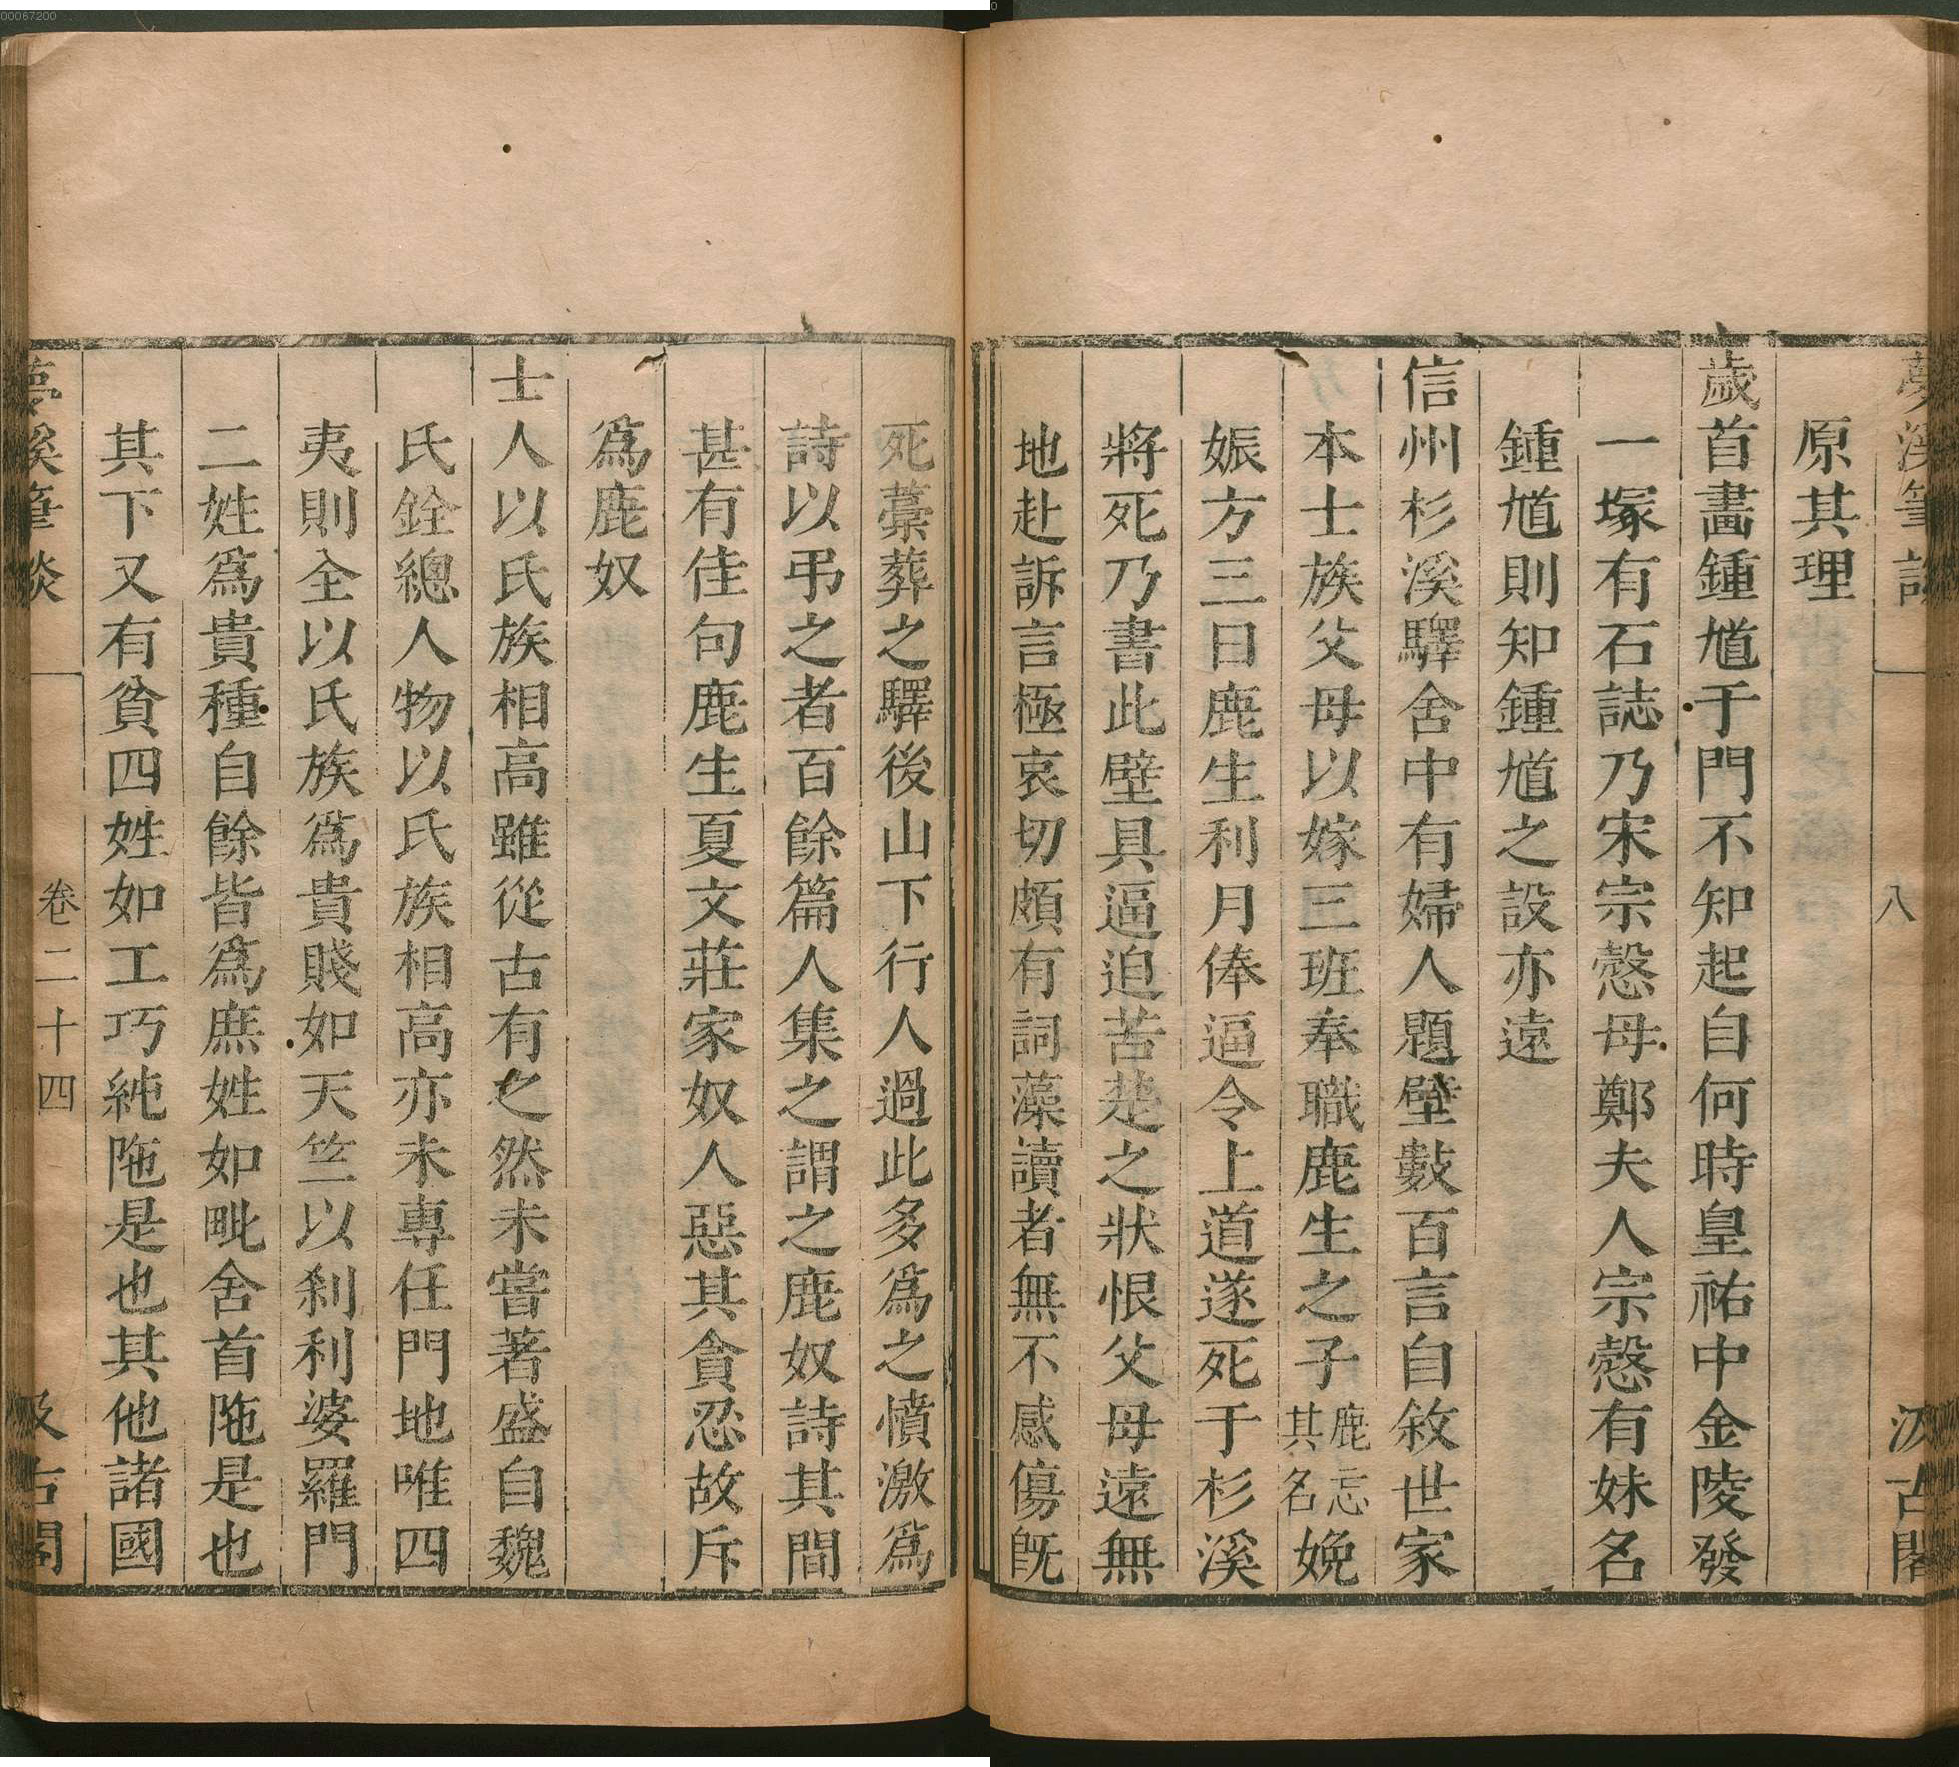 夢溪筆談 八 汲古閣
原其理
歲首畫鍾馗于門不知起自何時皇祐中金陵發
一塚有石誌乃宋宗愨母鄭夫人宗愨有妹名
鍾馗則知鍾馗之設亦遠
信州杉溪驛舍中有婦人題壁數百言自敘世家
本士族父母以嫁三班奉職鹿生之子鹿忘其名娩
娠方三日鹿生利月俸逼令上道遂死于杉溪
將死乃書此壁具逼迫苦楚之狀恨父母遠無
地赴訴言極哀切頗有詞藻讀者無不感傷旣
死藁葬之驛後山下行人過此多爲之憤激爲
詩以弔之者百餘篇人集之謂之鹿奴詩其間
甚有佳句鹿生夏文莊家奴人惡其貪忍故斥
爲鹿奴
士人以氏族相高雖從古有之然未嘗著盛自魏
氏銓總人物以氏族相高亦未專任門地唯四
夷則全以氏族爲貴賤如天竺以刹利婆羅門
二姓爲貴種自餘皆爲庶姓如毗舍首陁是也
其下又有貧四姓如工巧純陁是也其他諸國
夢溪筆談 卷二十四 汲古閣
00067200